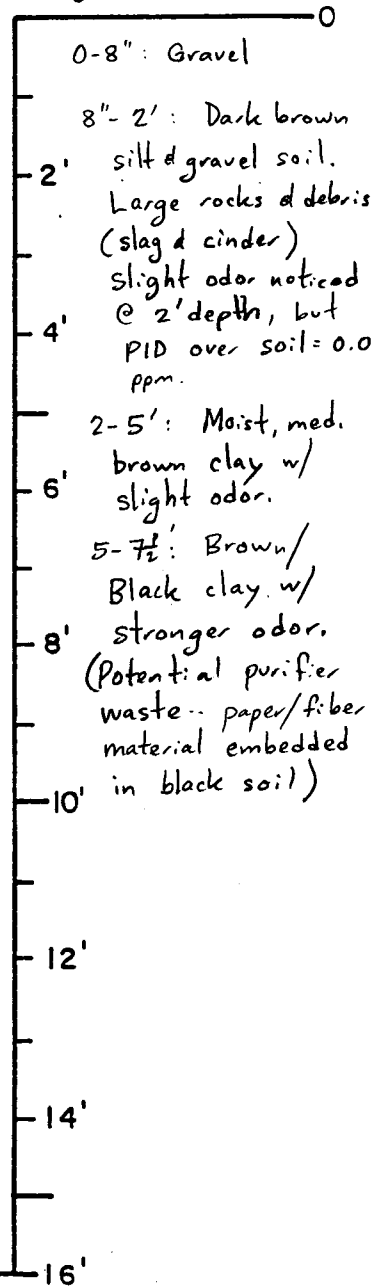 0
0-8": Gravel
8"- 2': Dark brown
2'
silt & gravel soil.
Large rocks & debris
(slag & cinder)
slight odor noticed
4'
@ 2' depth, but
PID over soil = 0.0
ppm.
2-5': Moist, med.
brown clay w/
6'
slight odor.
5-7½': Brown/
Black clay w/
8'
stronger odor.
(Potential purifier
waste -- paper/fiber
material embedded
10'
in black soil)
12'
14'
16'